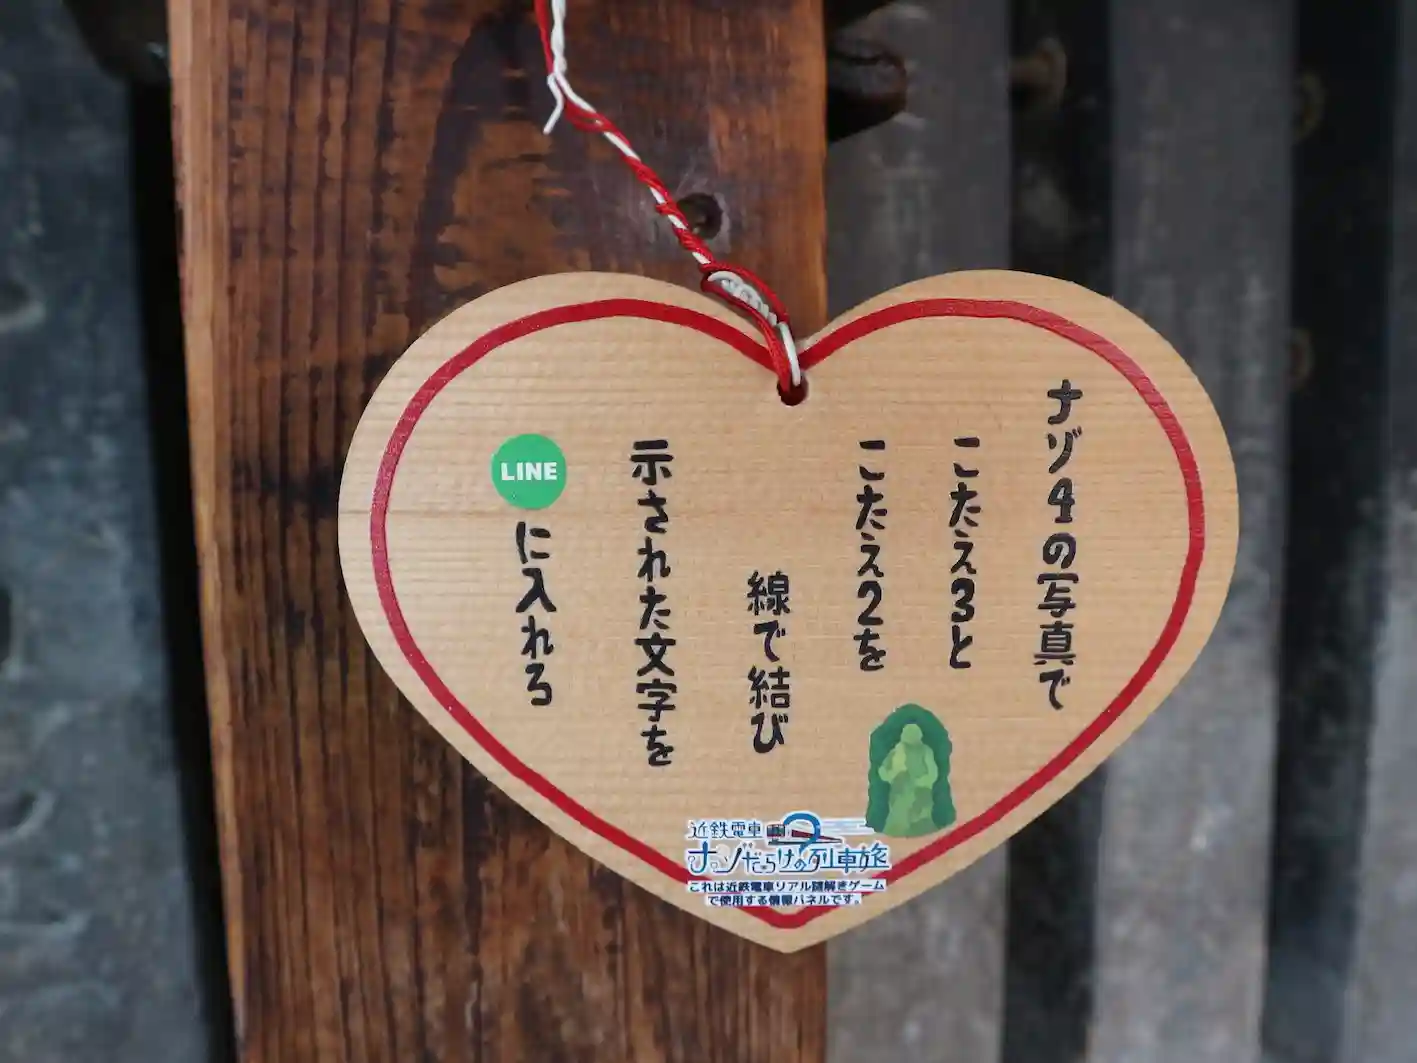 ナゾ4の写真で
こたえ3と
こたえ2を
線で結び
示された文字を
LINE
に入れろ
近鉄電車
ナゾだらけの列車旅
これは近鉄電車リアル謎解きゲーム
で使用する情報パネルです。